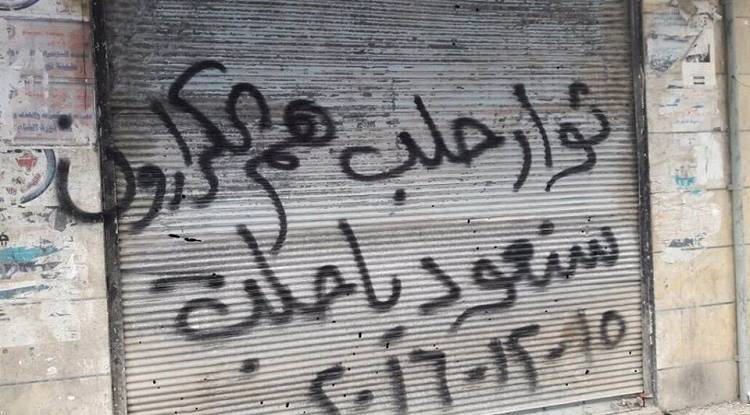 ثوار حلب هم الكرارون
سنعود يا حلب
١٥-١٢-٢٠١٦